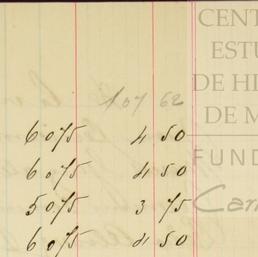 107 62
6 0 75 4 50
6 0 75 4 50
5 0 75 3 75
6 0 75 4 50
CENT
ESTU
DE HI
DE M
FUND